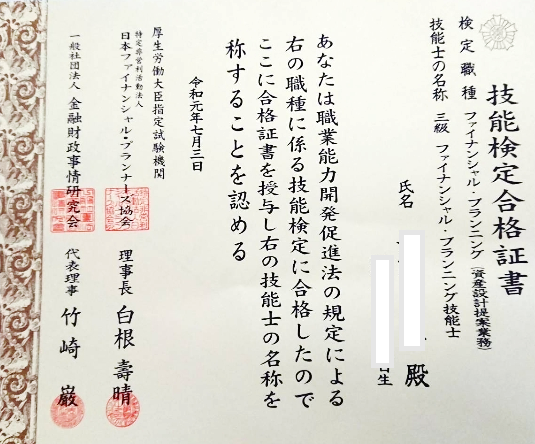 技能検定合格証書
検定職種 ファイナンシャル・プランニング(資産設計提案業務)
技能士の名称 三級 ファイナンシャル・プランニング技能士
氏名
殿
生
あなたは職業能力開発促進法の規定による
右の職種に係る技能検定に合格したので
ここに合格証書を授与し右の技能士の名称を
称することを認める
令和元年七月三日
厚生労働大臣指定試験機関
特定非営利活動法人
日本ファイナンシャル・プランナーズ協会 理事長 白根壽晴
一般社団法人 金融財政事情研究会 代表理事 竹崎巌